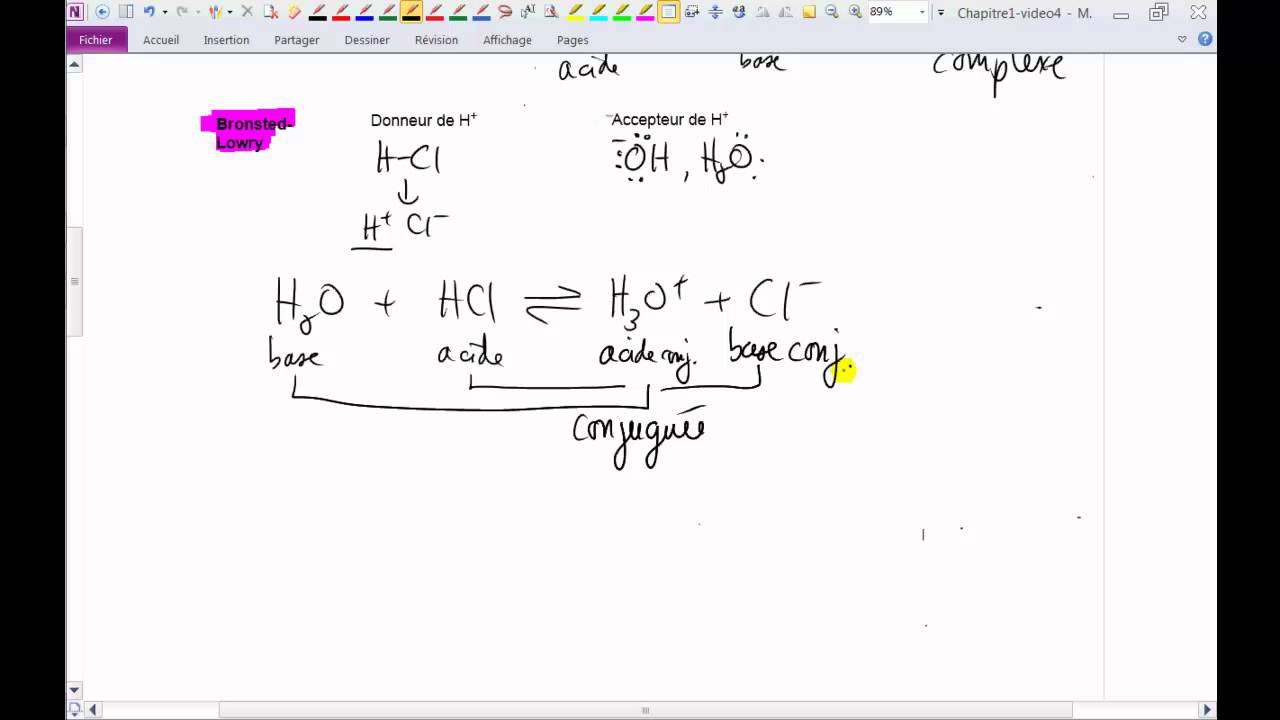 89%
Chapitre1-video4 - M.
Fichier Accueil Insertion Partager Dessiner Révision Affichage Pages
acide base complexe
Bronsted-
Lowry
Donneur de H⁺ Accepteur de H⁺
H-Cl ⁻:ÖH, H₂O
↓
H⁺ Cl⁻
H₂O + HCl ⇌ H₃O⁺ + Cl⁻
base acide acide conj. base conj.
conjuguée